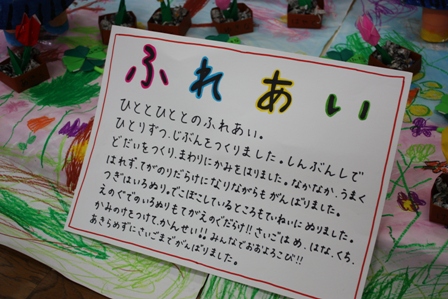 ふれあい
ひととひととのふれあい。
ひとりずつ、じぶんをつくりました。しんぶんしで
どだいをつくり、まわりにかみをはりました。なかなか、うまく
はれず、てがのりだらけになりながらも がんばりました。
つぎはいろぬり。でこぼこしているところもていねいにぬりました。
えのぐでのいろぬりもてがえのぐだらけ!!さいごは め、はな、くち、
かみのけをつけて、かんせい!!みんなでおおよろこび!!
あきらめずにさいごまでがんばりました。